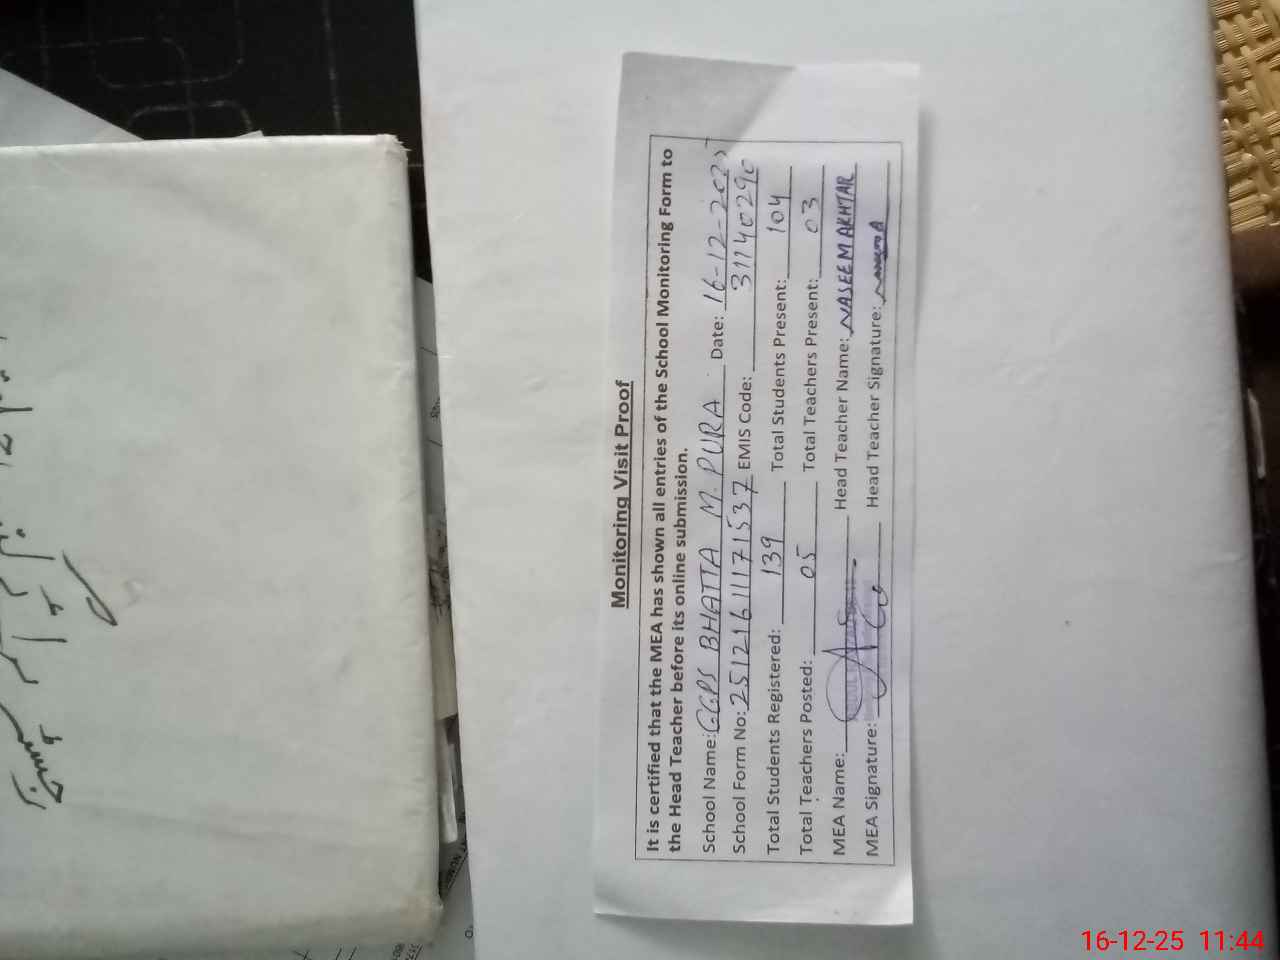 Monitoring Visit Proof
It is certified that the MEA has shown all entries of the School Monitoring Form to
the Head Teacher before its online submission.
School Name: GGPS BHATTA M. PURA Date: 16-12-2025
School Form No: 25121611171537 EMIS Code: 31140290
Total Students Registered: 139 Total Students Present: 104
Total Teachers Posted: 05 Total Teachers Present: 03
MEA Name: Head Teacher Name: NASEEM AKHTAR
MEA Signature: Head Teacher Signature:
16-12-25 11:44